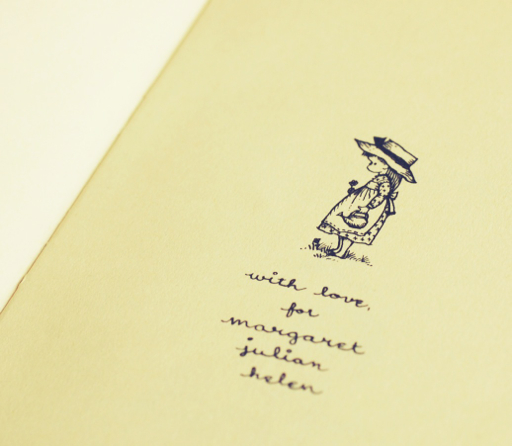 with love,
for
margaret
julian
helen